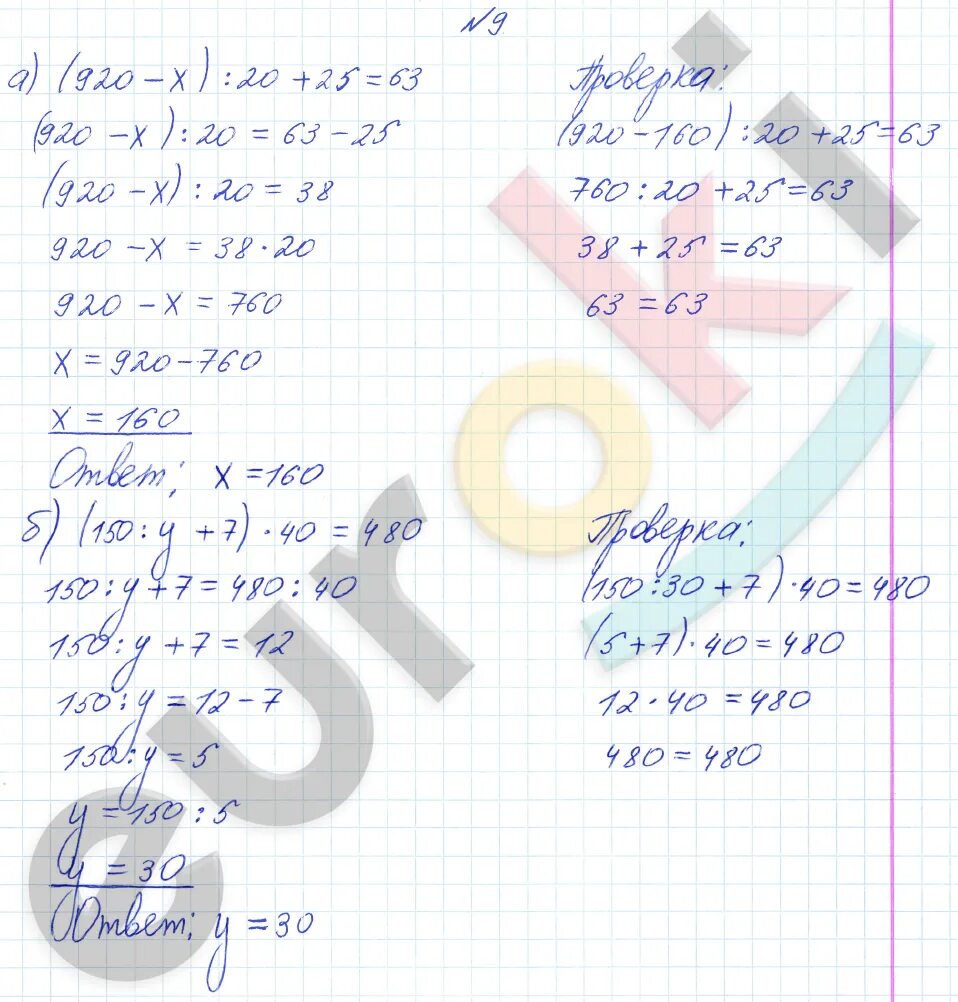 №9
а) (920 - x) : 20 + 25 = 63
(920 - x) : 20 = 63 - 25
(920 - x) : 20 = 38
920 - x = 38 · 20
920 - x = 760
x = 920 - 760
x = 160
Ответ: x = 160
Проверка:
(920 - 160) : 20 + 25 = 63
760 : 20 + 25 = 63
38 + 25 = 63
63 = 63
б) (150 : y + 7) · 40 = 480
150 : y + 7 = 480 : 40
150 : y + 7 = 12
150 : y = 12 - 7
150 : y = 5
y = 150 : 5
y = 30
Ответ: y = 30
Проверка:
(150 : 30 + 7) · 40 = 480
(5 + 7) · 40 = 480
12 · 40 = 480
480 = 480
euroki